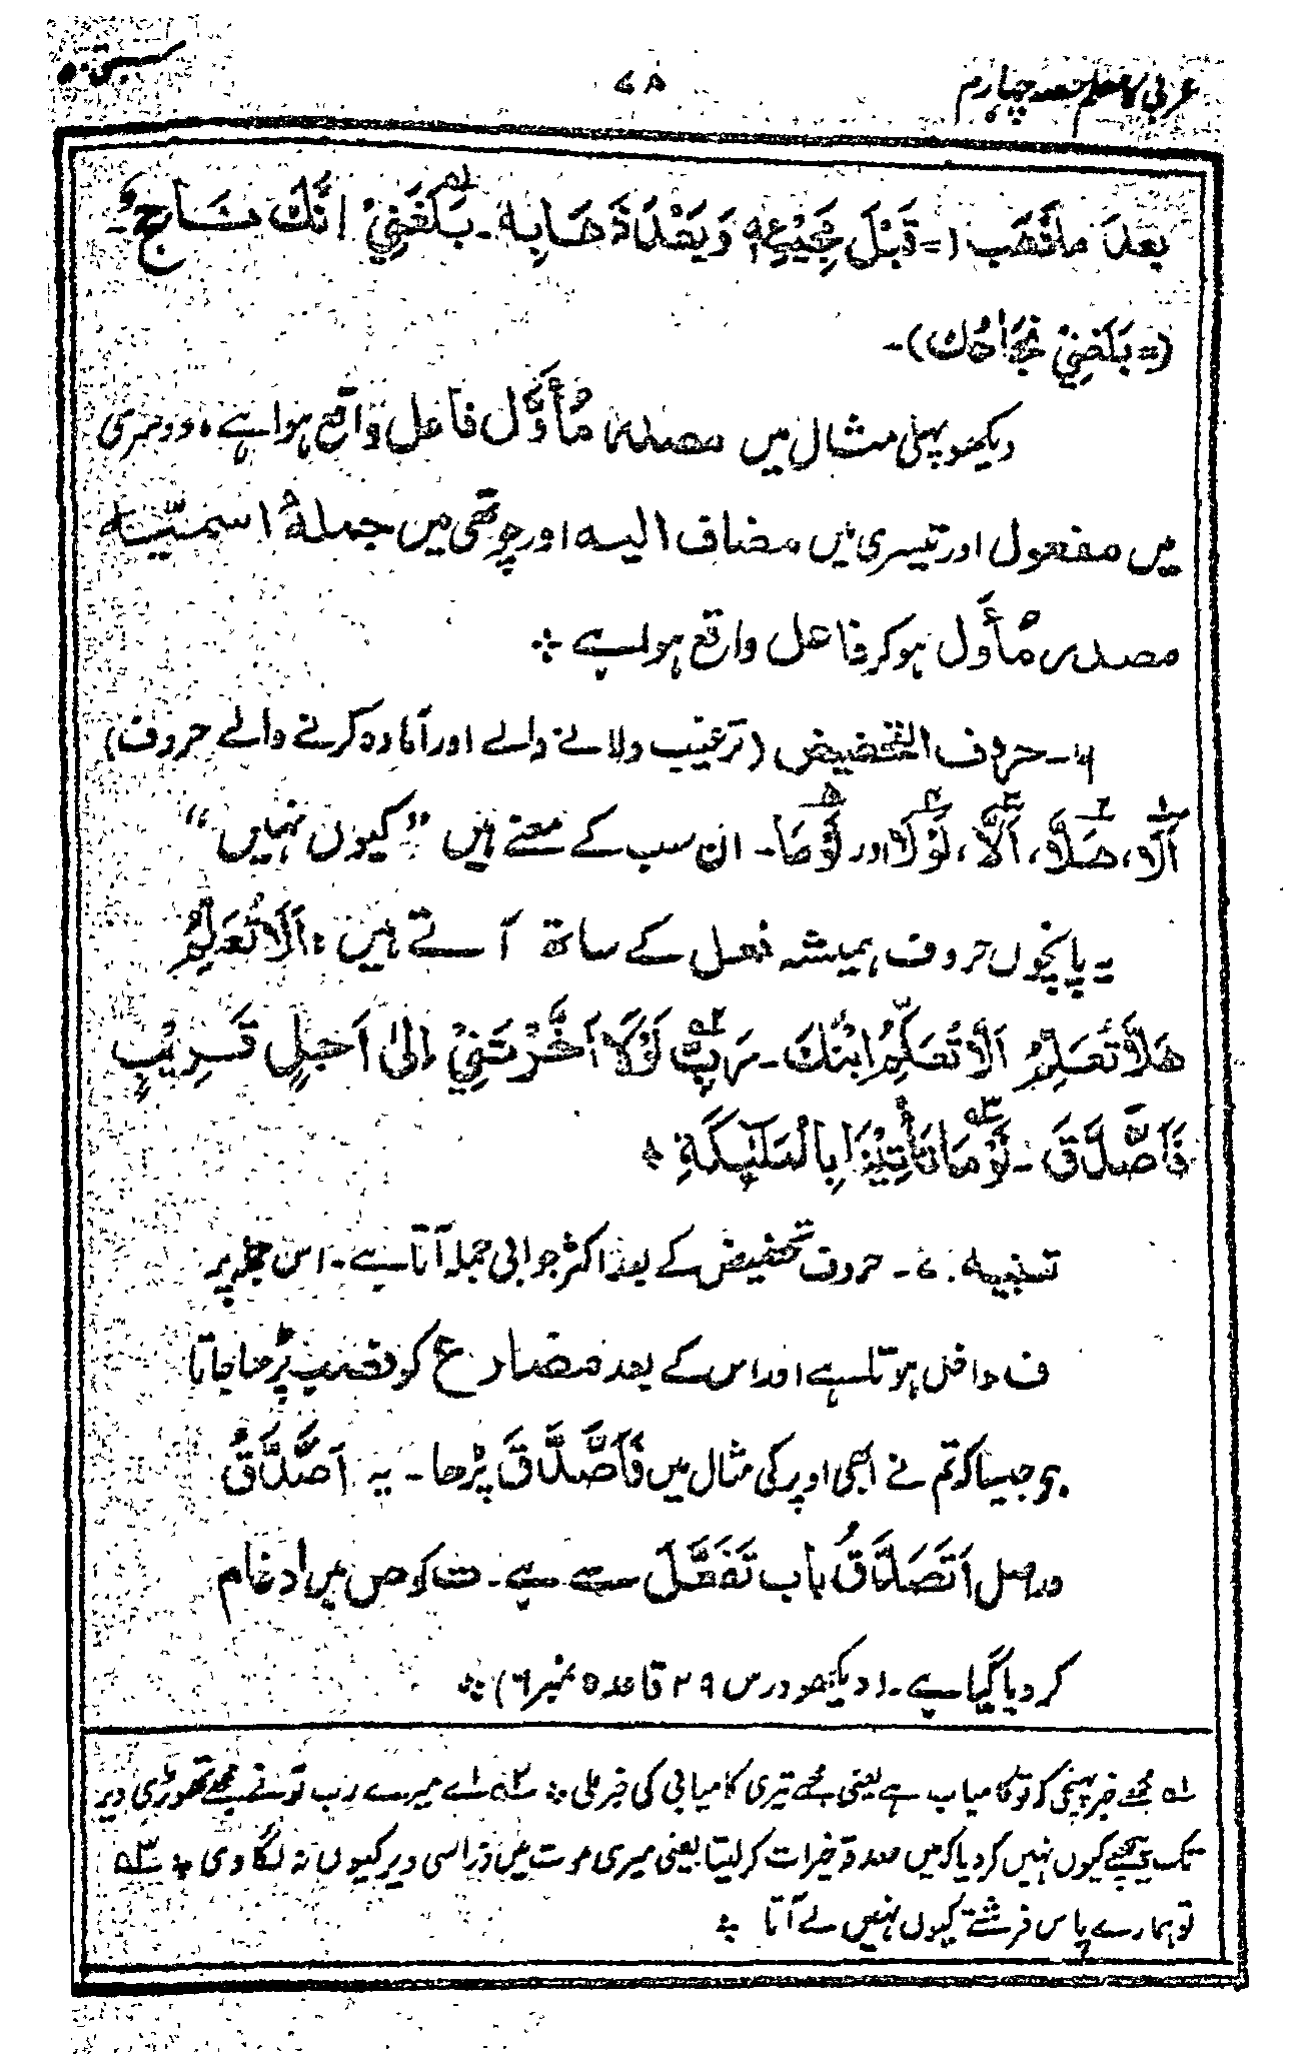 عربی کا معلم حصہ چہارم ۷۸ سبق ۵۰
بعدَ ما ذَهَب (= قَبْلَ مَجِيْئِهٖ وَبَعْدَ ذَهَابِهٖ۔ بَلَغَنِيْ اَنَّكَ نَاجِحٌ۔
(= بَلَغَنِيْ نَجَاحُكَ)۔
دیکھو پہلی مثال میں مصدر مُأَوَّل فاعل واقع ہوا ہے، دوسری
میں مفعول اور تیسری میں مضاف الیہ اور چوتھی میں جملۂ اسمیّہ
مصدر مُأَوَّل ہو کر فاعل واقع ہوا ہے ÷
۶۔ حروف التحضیض (ترغیب دلانے والے اور آمادہ کرنے والے حروف)
اَلَا، هَلَّا، اَلَّا، لَوْلَا اور لَوْمَا۔ ان سب کے معنے ہیں "کیوں نہیں"
یہ پانچوں حروف ہمیشہ فعل کے ساتھ آتے ہیں: اَلَا تُعَلِّمُ
هَلَّا تُعَلِّمُ اَلَّا تُعَلِّمُ ابْنَكَ۔ رَبِّ لَوْلَا اَخَّرْتَنِيْ اِلٰى اَجَلٍ قَرِيْبٍ
فَاَصَّدَّقَ۔ لَوْمَا تَأْتِيْنَا بِالْمَلٰٓئِكَةِ ÷
تنبیہ ۷۔ حروف تحضیض کے بعد اکثر جوابی جملہ آتا ہے۔ اس جملہ پر
ف داخل ہوتا ہے اور اس کے بعد مضارع کو نصب پڑھا جاتا
ہے جیسا کہ تم نے ابھی اوپر کی مثال میں فَاَصَّدَّقَ پڑھا۔ یہ اَصَّدَّقُ
دراصل اَتَصَدَّقُ باب تَفَعَّلَ سے ہے۔ ت کو ص میں ادغام
کر دیا گیا ہے۔ (دیکھو درس ۲۹ قاعدہ نمبر ۶) ÷
۱؎ مجھے خبر پہنچی کہ تو کامیاب ہے یعنی مجھے تیری کامیابی کی خبر ملی ÷ ۲؎ اے میرے رب تو نے مجھے تھوڑی دیر
تک پیچھے کیوں نہیں کر دیا کہ میں صدقہ خیرات کر لیتا یعنی میری موت میں ذرا سی دیر کیوں نہ لگا دی ÷ ۳؎
تو ہمارے پاس فرشتے کیوں نہیں لے آتا ÷